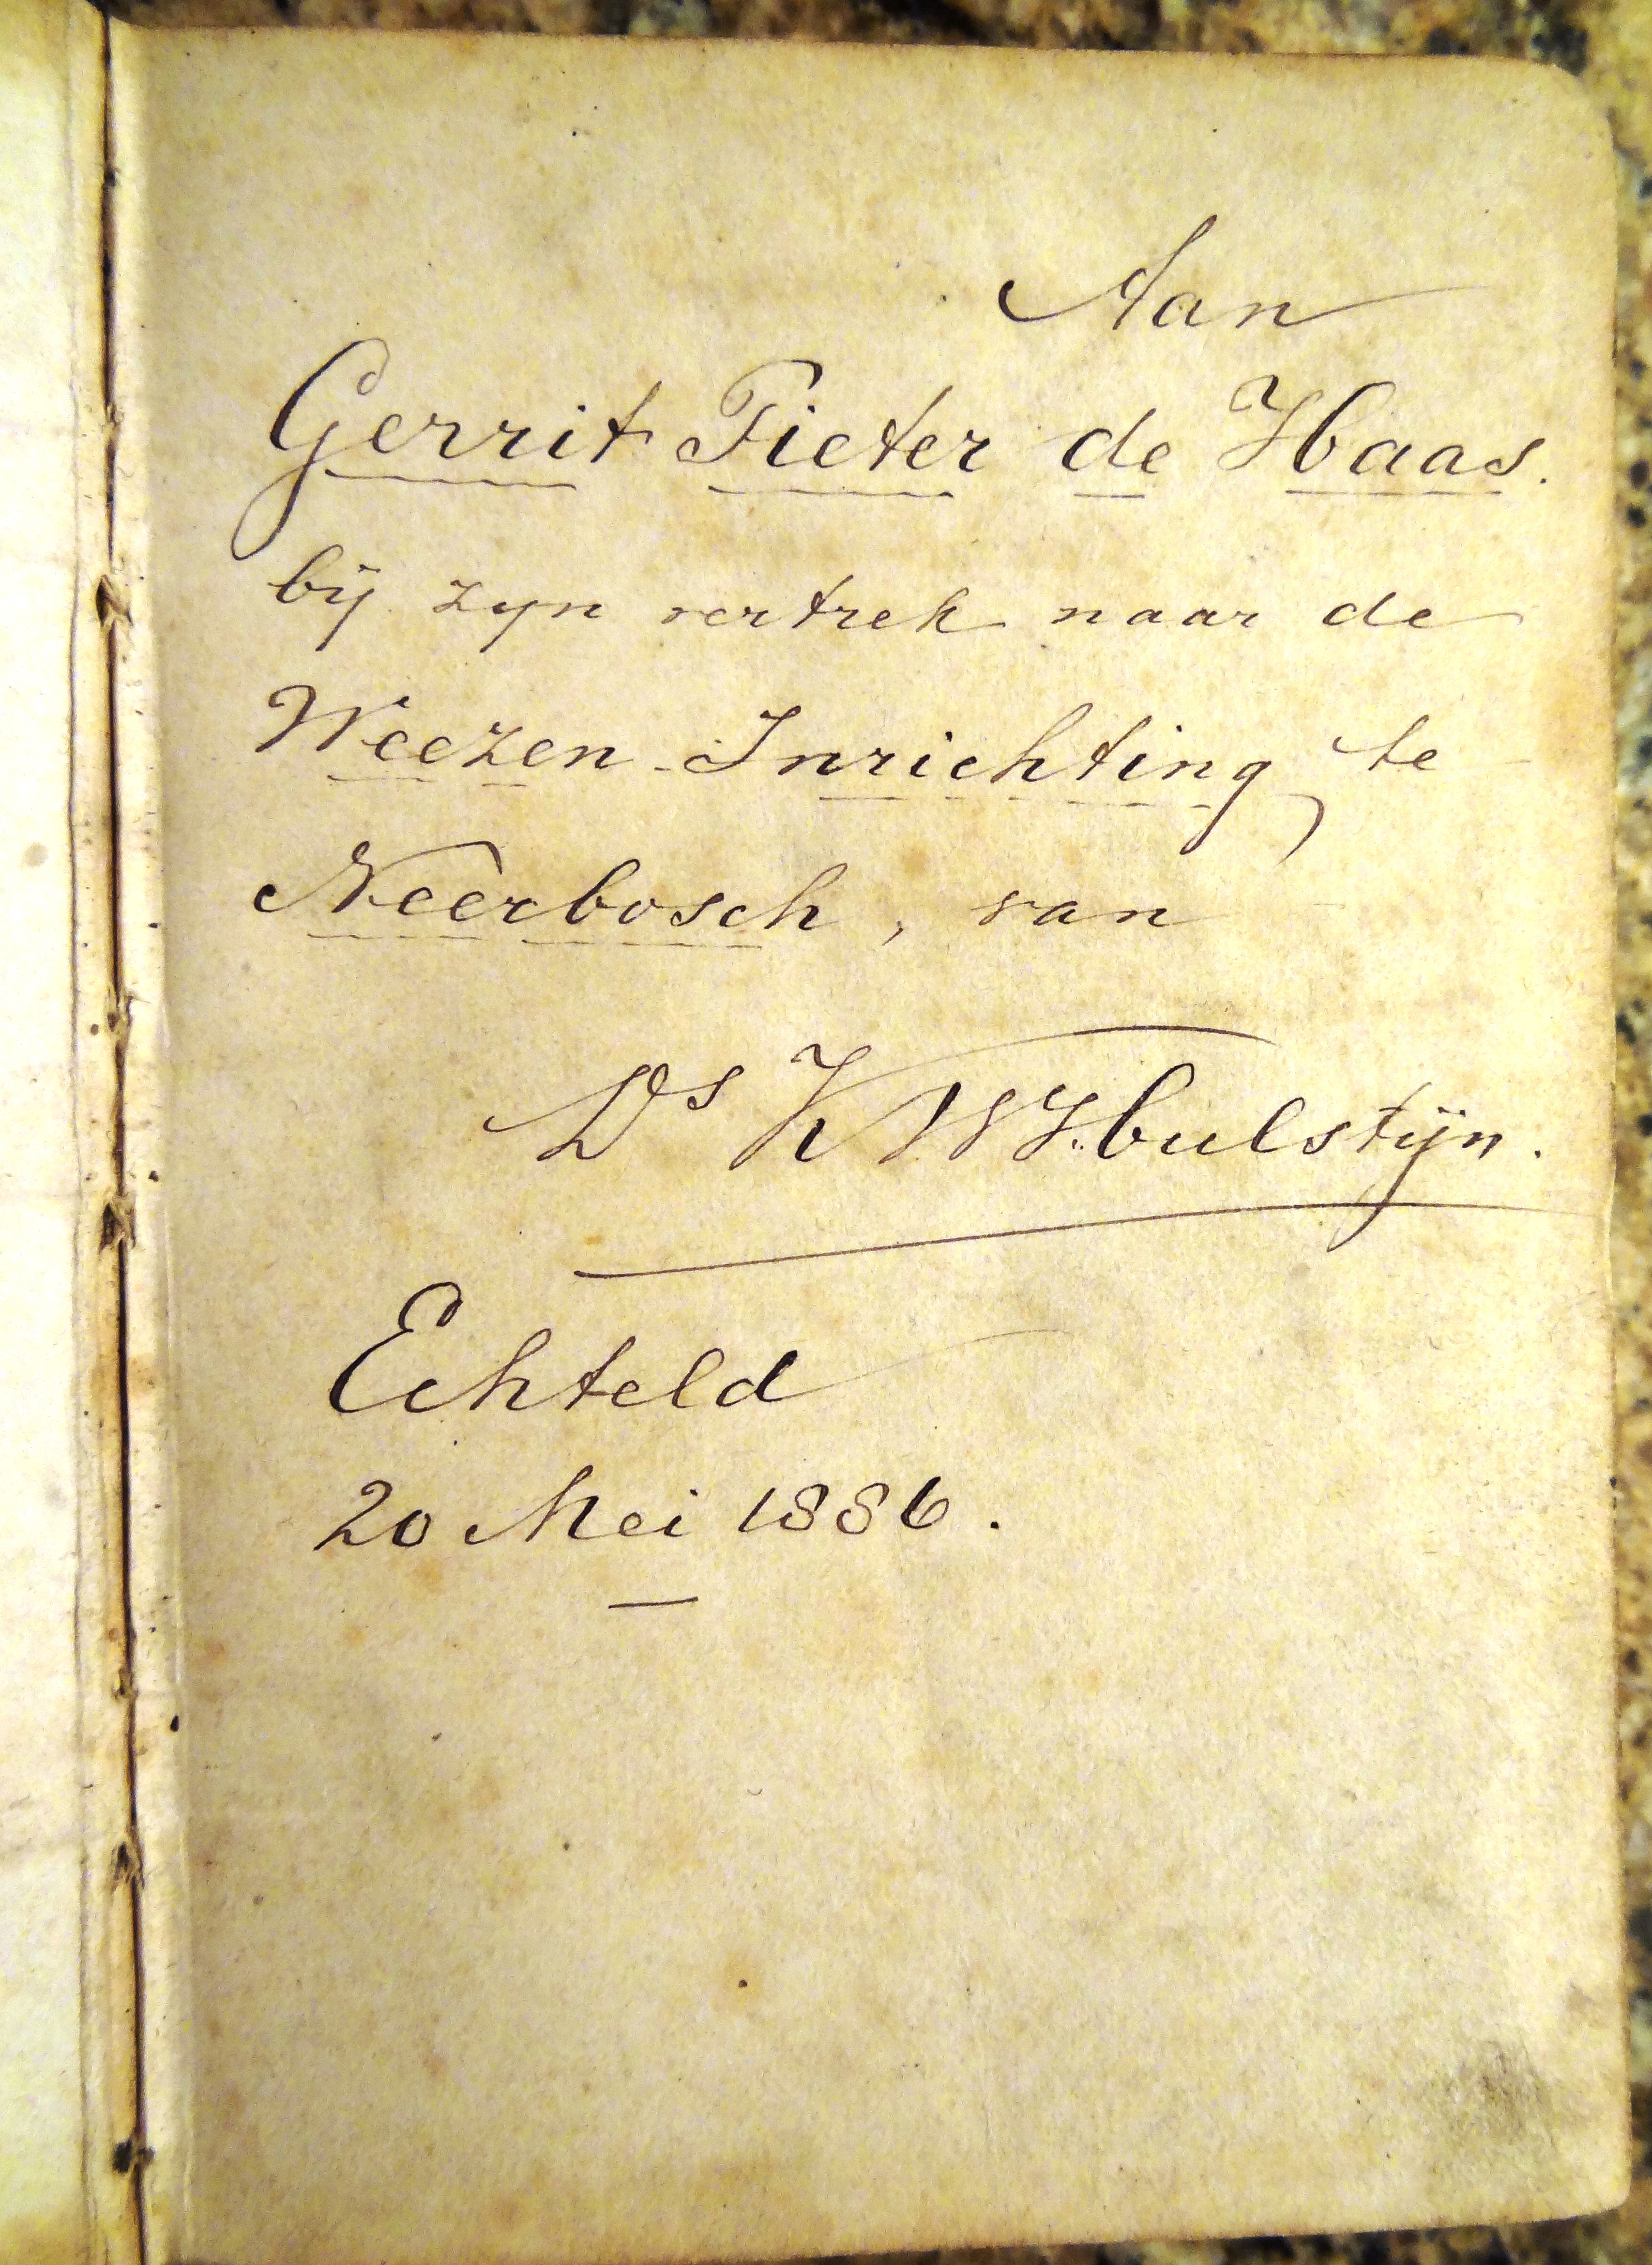 Aan
Gerrit Pieter de Haas.
bij zijn vertrek naar de
Weezen-Inrichting te
Neerbosch, van
Ds K W Hulstijn.
Echteld
20 Mei 1886.